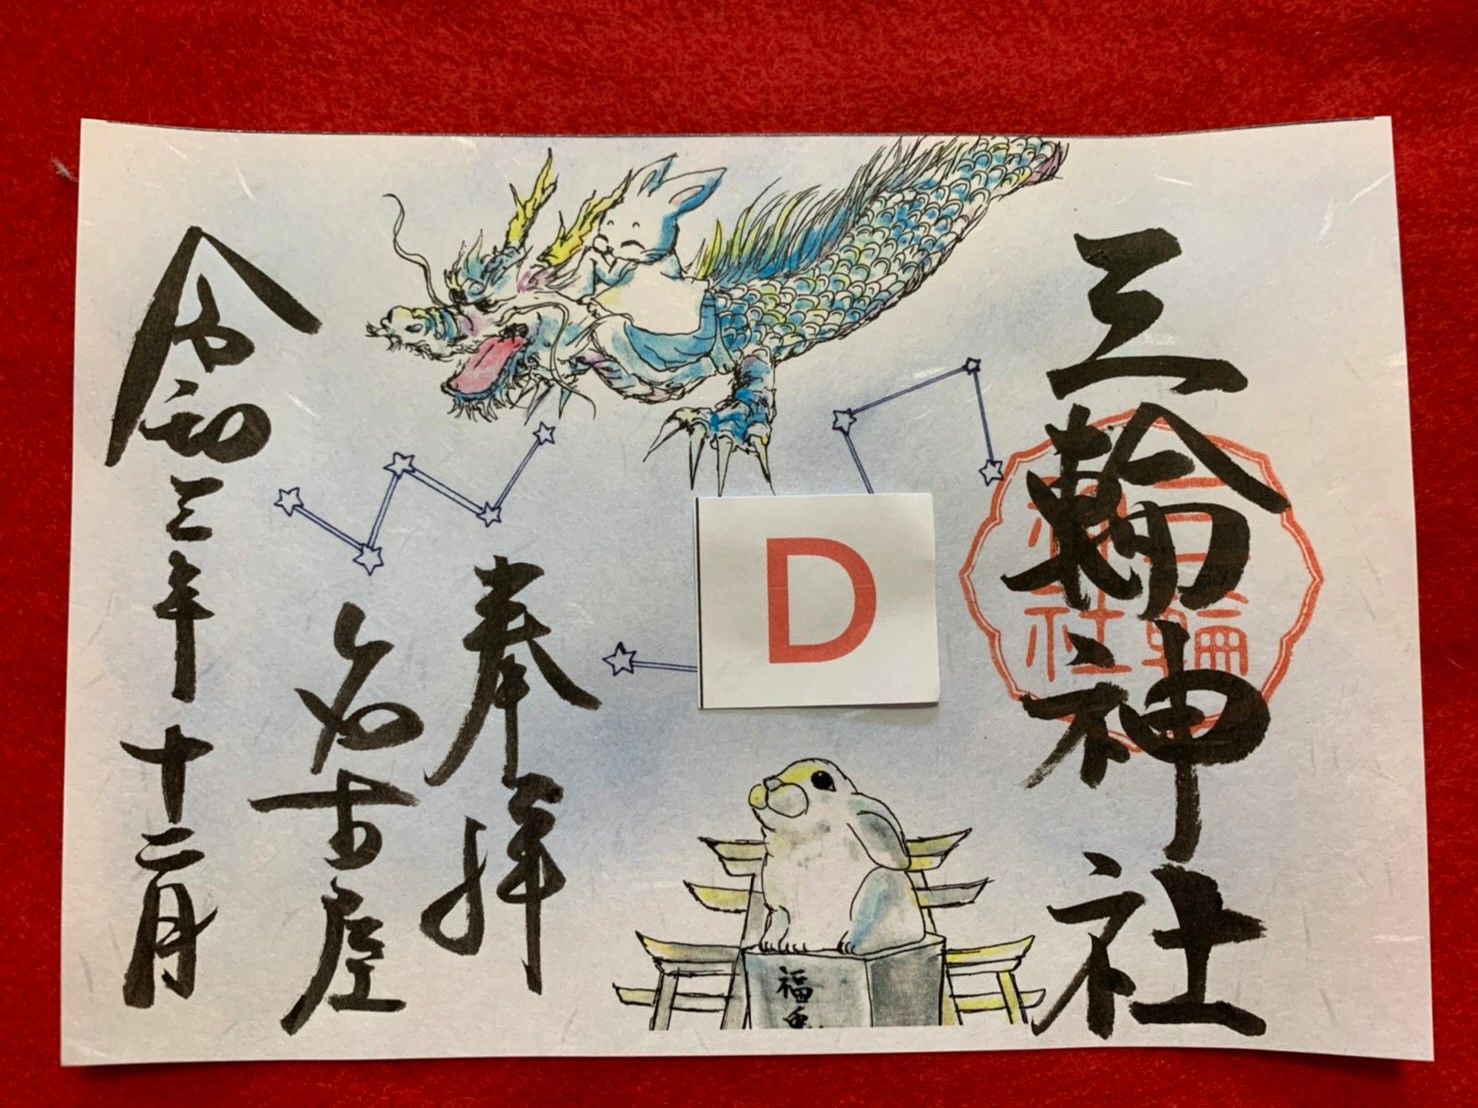 三輪神社
三輪
神社
D
福兎
奉拝
名古屋
令和三年十二月